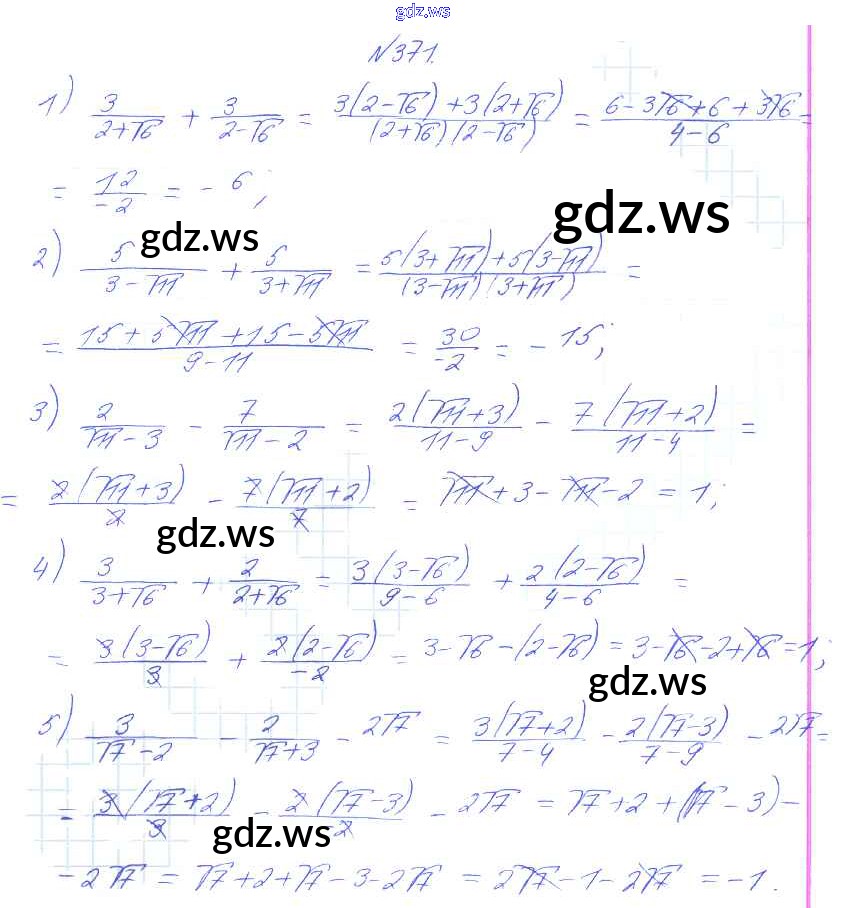 gdz.ws
№371.
1) 3/(2+√6) + 3/(2-√6) = (3(2-√6)+3(2+√6))/((2+√6)(2-√6)) = (6-3√6+6+3√6)/(4-6) =
= 12/-2 = -6;
gdz.ws
gdz.ws
2) 5/(3-√11) + 5/(3+√11) = (5(3+√11)+5(3-√11))/((3-√11)(3+√11)) =
= (15+5√11+15-5√11)/(9-11) = 30/-2 = -15;
3) 2/(√11-3) - 7/(√11-2) = 2(√11+3)/(11-9) - 7(√11+2)/(11-4) =
= 2(√11+3)/2 - 7(√11+2)/7 = √11+3-√11-2 = 1;
gdz.ws
4) 3/(3+√6) + 2/(2+√6) = 3(3-√6)/(9-6) + 2(2-√6)/(4-6) =
= 3(3-√6)/3 + 2(2-√6)/-2 = 3-√6-(2-√6) = 3-√6-2+√6 = 1;
gdz.ws
5) 3/(√7-2) - 2/(√7+3) - 2√7 = 3(√7+2)/(7-4) - 2(√7-3)/(7-9) - 2√7 =
= 3(√7+2)/3 - 2(√7-3)/-2 - 2√7 = √7+2+(√7-3)-
gdz.ws
-2√7 = √7+2+√7-3-2√7 = 2√7-1-2√7 = -1.